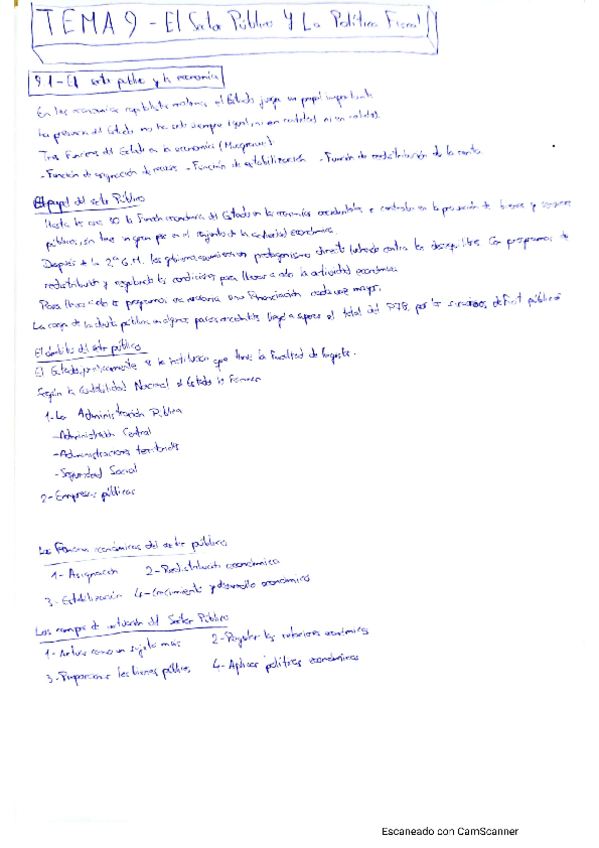 TEMA 9 - El Sector Público Y La Política Fiscal
9.1 - El sector público y la economía
En las economías capitalistas modernas el Estado juega un papel importante
La presencia del Estado no ha sido siempre igual, ni en cantidad ni en calidad.
Tres Funciones del Estado en la economía (Musgrave):
- Función de asignación de recursos - Función de estabilización - Función de redistribución de la renta.
El papel del sector Público
Hasta los años 30 la Función económica del Estado en las economías occidentales se centraba en la provisión de bienes y servicios
públicos, sin tener un gran peso en el conjunto de la actividad económica.
Después de la 2ª G.M. los gobiernos asumieron un protagonismo directo luchando contra los desequilibrios Con programas de
redistribución y regulando las condiciones para llevar a cabo la actividad económica
Para llevar a cabo los programas es necesaria una Financiación cada vez mayor.
La carga de la deuda pública en algunos países occidentales llega a superar el total del PIB, por los sucesivos déficit públicos
El ámbito del sector público
El Estado, precisamente es la institución que tiene la Facultad de
Según la Contabilidad Nacional el Estado lo Forman
1- La Administración Pública
- Administración Central
- Administraciones territoriales
- Seguridad Social
2- Empresas públicas
Las Funciones económicas del sector público
1- Asignación 2- Redistribución económica
3- Estabilización 4- Crecimiento y desarrollo económico
Los campos de actuación del Sector Público
1- Actuar como un sujeto más 2- Regular las relaciones económicas
3- Proporcionar los bienes públicos 4- Aplicar políticas económicas
Escaneado con CamScanner